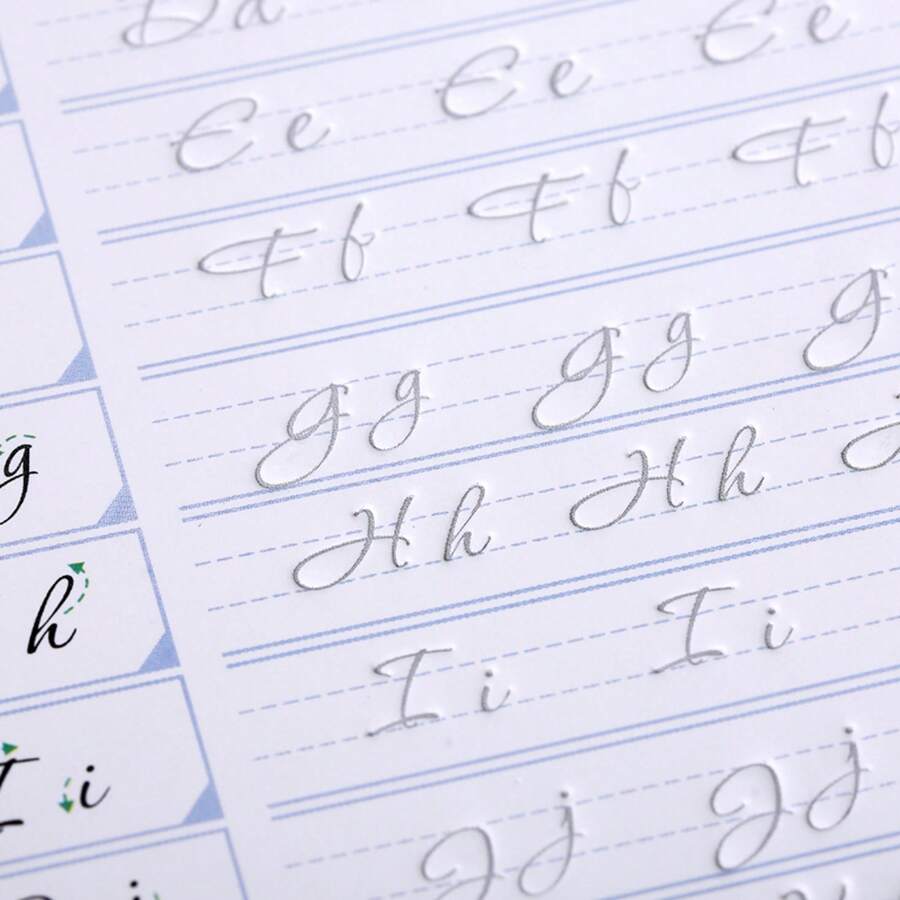 Dd
Ee Ee Ee
Ff Ff Ff
g Gg Gg G
h Hh Hh
I i Ii Ii
j Jj Jj